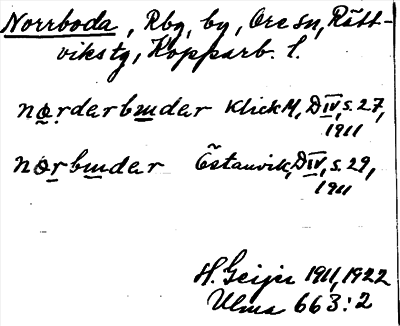 Norrboda, Rbg, by, Ore sn, Rätt-
vikstg, Kopparb. l.
nørderbɯder Klick M, D IV, s. 27,
1911
nørbɯder Östanvik, D IV, s. 29,
1911
H. Geijer 1911, 1922
Ulma 663:2